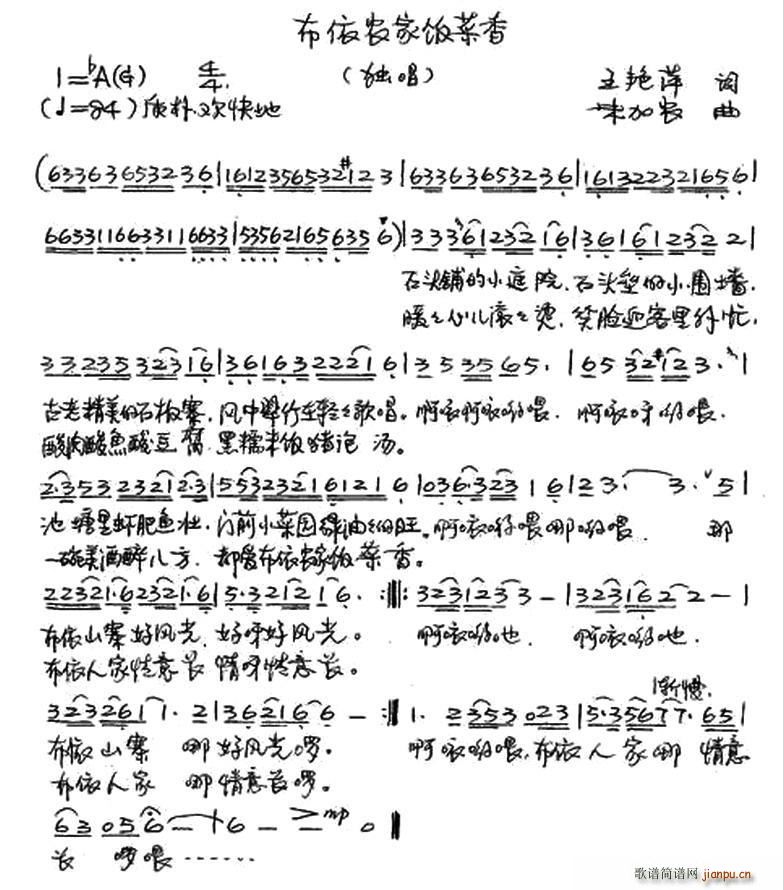 布依农家饭菜香
1=♭A(G) 4/4 (独唱) 王艳萍 词
(♩=84) 质朴欢快地 朱加农 曲
(6336365323 6|161235653212 3|6336365323 6|161322321656|
66331166331166 33|53562165635 6)|333612321 6|361612 32 2|
石头铺的小庭院,石头垒的小围墙,
暖暖心儿滚滚烫,笑脸迎客里外忙,
3 3 2 3 5 3 2 3 1 6|3 6 1 6 3 2 2 2 1 6|3 5 3 5 6 5.|6 5 3 2 #1 2 3.|
古老精美的石板寨,风中翠竹在轻轻歌唱。啊依啊依哟喂,啊依呀哟喂,
酸肉酸鱼酸豆腐 黑糯米饭 汤。
2·3 5 3 2 3 2 1 2·3|5 5 3 2 3 2 1 6 1 2 1 6|0 3 6·3 2 3 1 6|2 3. 3. 5|
池塘里虾肥鱼壮,门前小菜园绿油油的旺。啊依哟喂那哟喂 那
一碗美酒醉八方,都因布依农家饭菜香。
2 2 3 2 1·6 2 3 2 1·6|5·3 2 1 2 1 6.:||:3 2 3 1 2 3 3 —|3 2 3 1 6 2 2 —|
布依山寨好风光,好呀好风光。 啊依哟也, 啊依哟也,
布依人家情意长 情呀情意长。
渐慢
3 2 3 2 6 1 1. 2|3 6 2 1 6 6 —:||1. 2 3 5 3 0 2 3|5·3 5 6 7 7. 6 5|
布依山寨 那好风光啰。 啊依哟喂,布依人家那 情意
布依人家 那情意长啰。
6 3 0 5 6 — 6 — > mp 0 ‖
长 啰喂……
歌谱简谱网
jianpu.cn